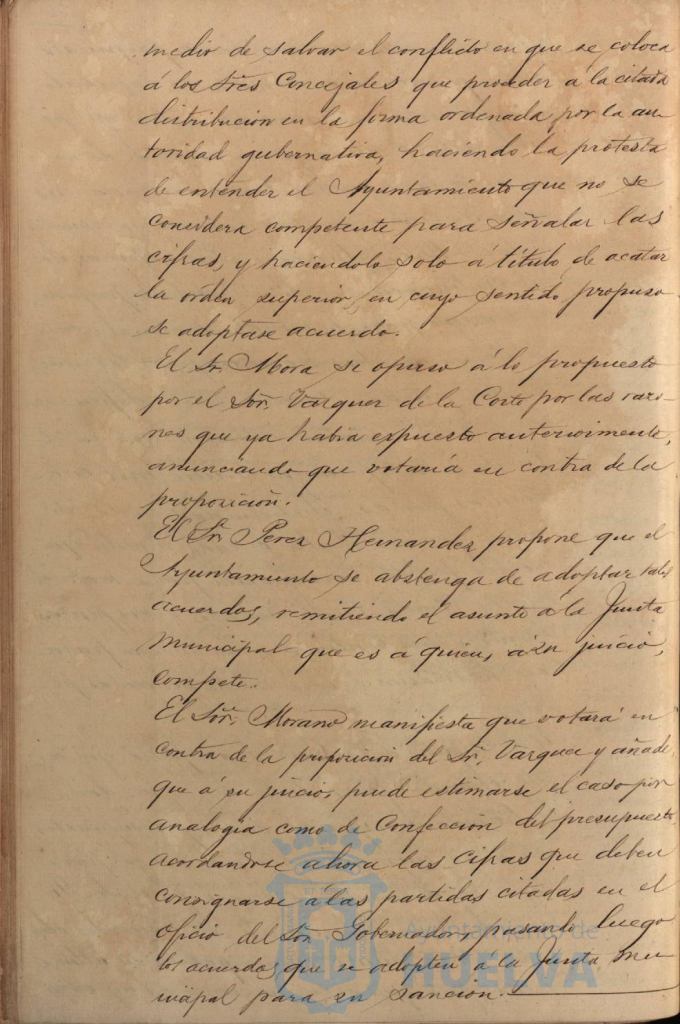 medio de salvar el conflicto en que se coloca
á los tres Concejales que proceder á la citada
distribucion en la forma ordenada por la au-
toridad gubernativa, haciendo la protesta
de entender el Ayuntamiento que no se
considera competente para señalar las
cifras, y haciendolo solo á título de acatar
la orden superior, en cuyo sentido propuso
se adoptase acuerdo.
El Sr. Mora se opuso á lo propuesto
por el Sor. Vazquez de la Corte por las razo-
nes que ya habia expuesto anteriormente,
anunciando que votaría en contra de la
proposicion.
El Sr. Perez Hernandez propone que el
Ayuntamiento se abstenga de adoptar tales
acuerdos, remitiendo el asunto á la Junta
Municipal que es á quien, á su juicio,
compete.
El Sor. Morano manifiesta que votará en
contra de la proposicion del Sr. Vazquez y añade
que á su juicio, puede estimarse el caso por
analogia como de Confección del presupuesto
acordandose ahora las cifras que deben
consignarse á las partidas citadas en el
oficio del Sor. Gobernador, pasando luego
los acuerdos que se adopten á la Junta mu-
nicipal para su sancion.
Ayuntamiento de
HUELVA